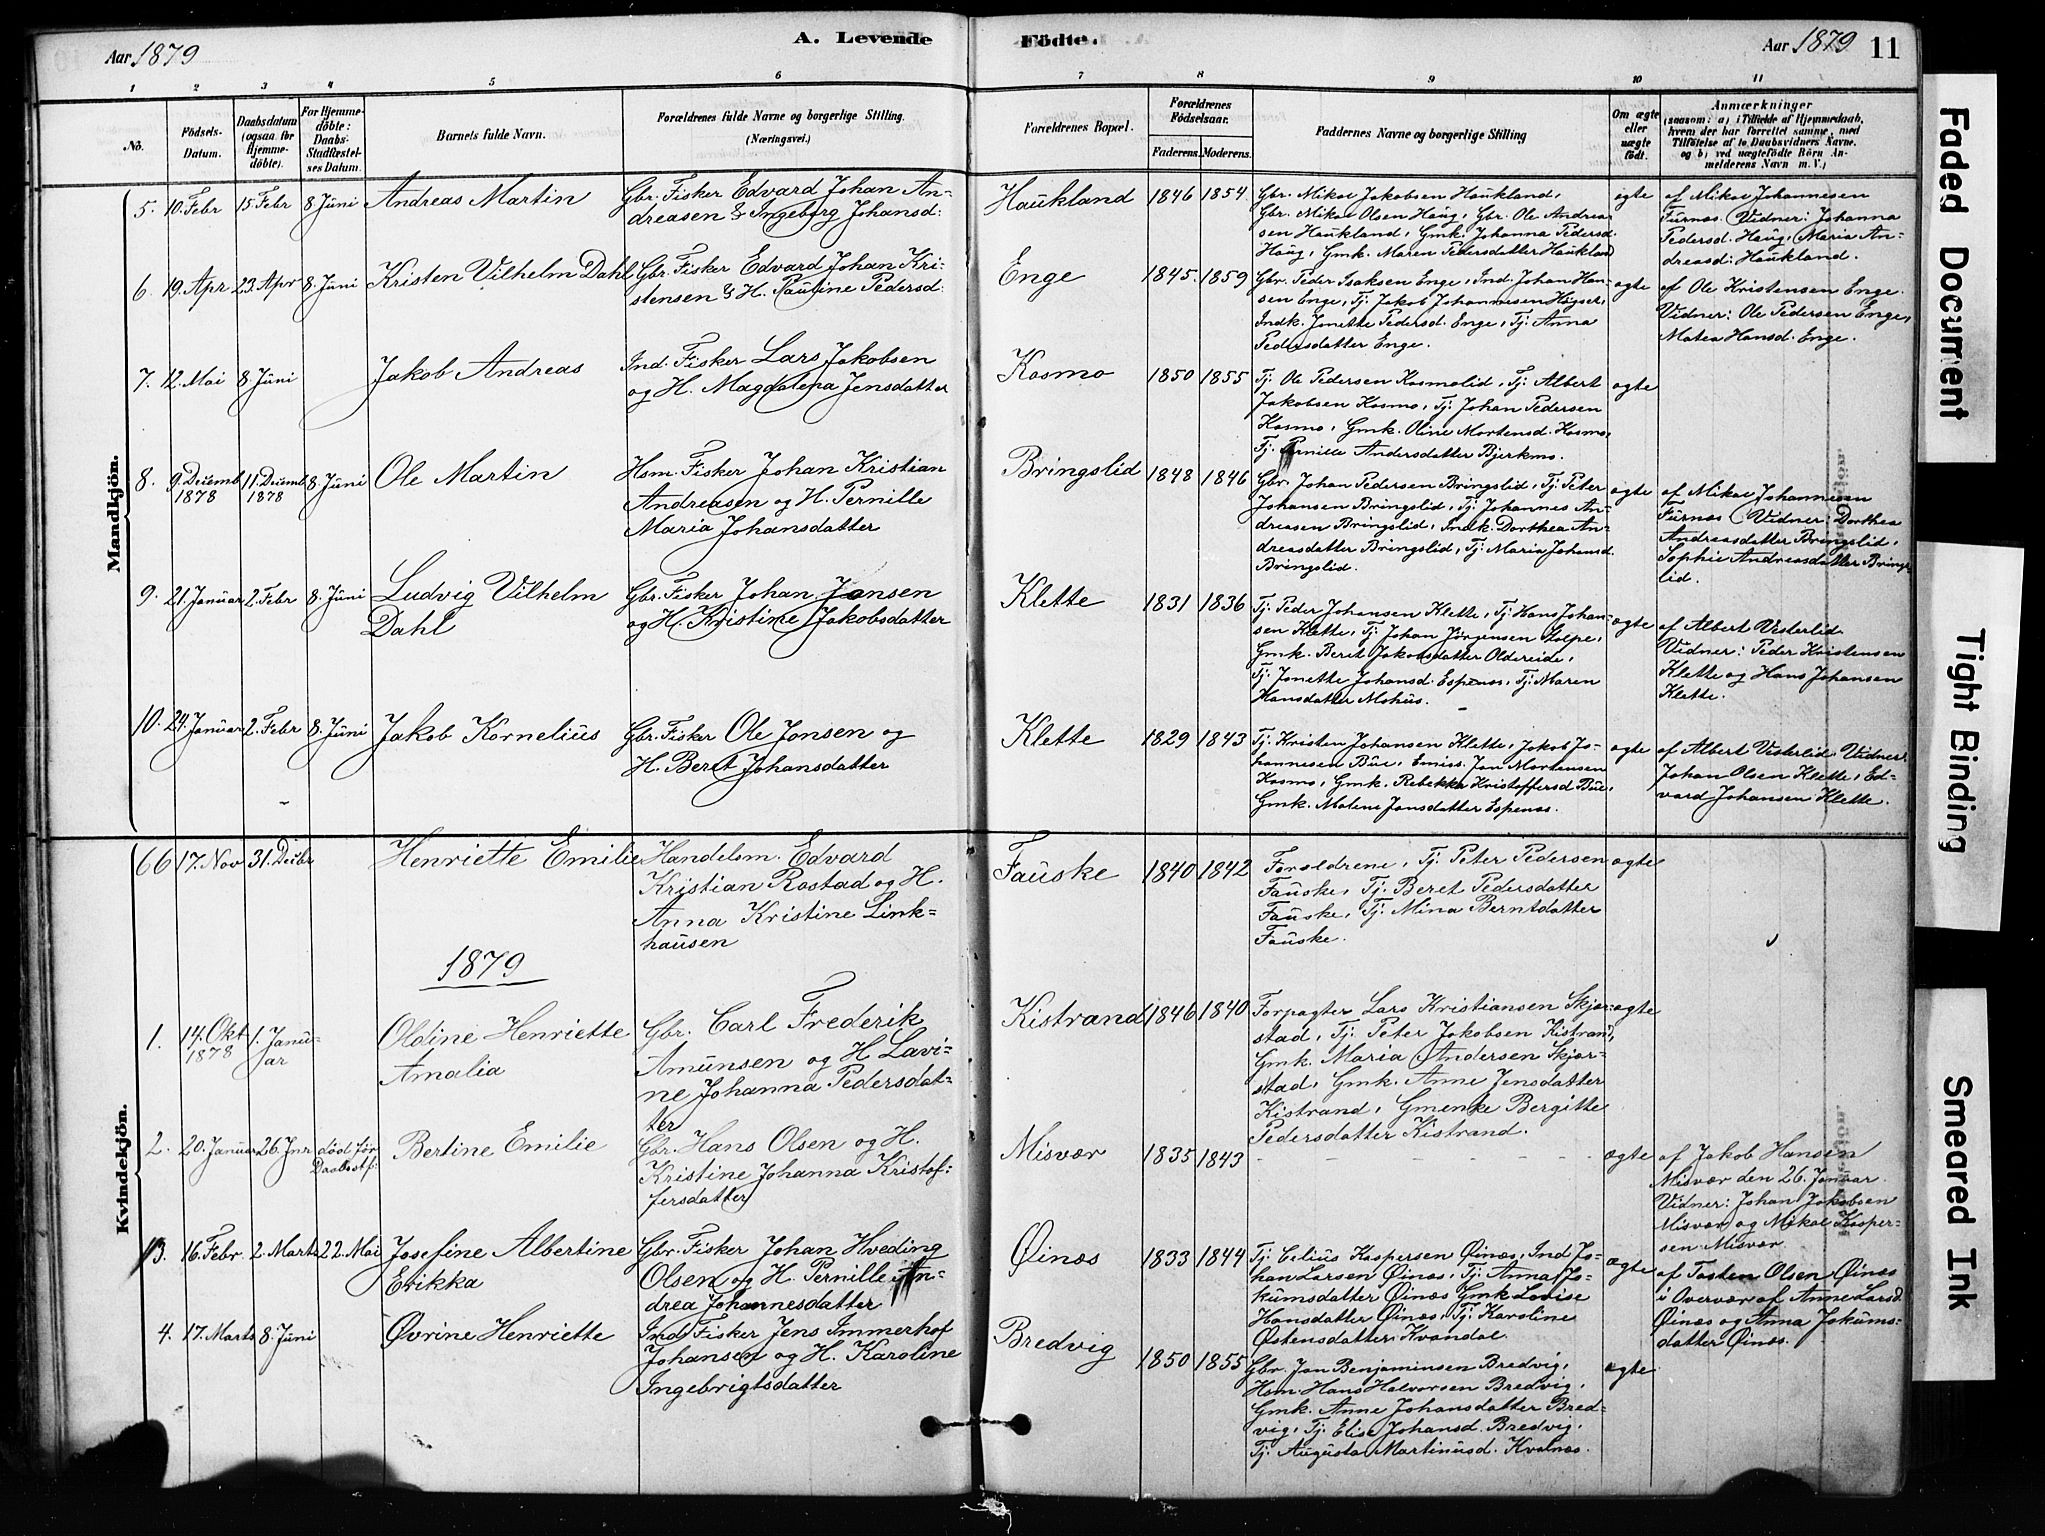 Aar 1879
A. Levende Födte.
Aar 1879 11
1 2 3 4 5 6 7 8 9 10 11
No.
Födsels-
Datum.
Daabsdatum
(ogsaa for
Hjemme-
döbte).
For Hjemme-
döbte:
Daabs-
Stadfæstel-
ses Datum.
Barnets fulde Navn.
Forældrenes fulde Navne og borgerlige Stilling.
(Næringsvei.)
Forældrenes Bopæl.
Forældrenes
Födselsaar.
Faderens. Moderens.
Faddernes Navne og borgerlige Stilling
Om ægte
eller
uægte
födt.
Anmærkninger
(saasom: a) i Tilfælde af Hjemmedaab,
hvem der har forrettet samme, med
Tilföielse af to Daabsvidners Navne,
og b) ved uægtefödte Börn An-
melderens Navn m. V.)
Mandkjön.
5. 10. Febr 15 Febr 8 Juni Andreas Martin
Gbr. Fisker Edvard Johan An-
dreasen & Ingeborg Johansd:
Haukland 1846 1854
Gbr. Mikal Jakobsen Haukland,
Gbr. Mikal Olsen Haug, Gbr. Ole Andrea-
sen Haukland, Gmk. Johanna Pedersd.
Haug, Gmk. Maren Pedersdatter Haukland
ægte
af Mikal Johannesen
Furnæs. Vidner: Johanna
Pedersd. Haug, Maria An-
dreasd: Haukland.
6. 19. Apr 23. Apr 8. Juni Kristen Vilhelm Dahl
Gbr. Fisker Edvard Johan Kri-
stensen & H. Pauline Pedersd:
Enge 1845 1859
Gbr. Peder Isaksen Enge, Ind. Johan Han-
sen Enge, Tj. Jakob Johannesen Høgset,
Indk. Jonette Pedersd. Enge, Tj: Anna
Pedersdatter Enge.
ægte
af Ole Kristensen Enge.
Vidner: Ole Pedersen Enge,
Matea Hansd. Enge.
7. 12. Mai 8. Juni Jakob Andreas
Ind. Fisker Lars Jakobsen
og H. Magdalena Jensdatter
Kosmo 1850 1855
Tj: Ole Pedersen Kosmolid, Tj: Albert
Jakobsen Kosmo, Tj: Johan Pedersen
Kosmo, Gmk. Oline Mortensd. Kosmo,
Tj: Pernille Andersdatter Bjerkmo.
ægte
8. 9. Decemb 1878 11. Decemb 1878 8 Juni Ole Martin
Hsm. Fisker Johan Kristian
Andreasen og H. Pernille
Maria Johansdatter
Bringslid 1848 1846
Gbr. Johan Pedersen Bringslid, Tj: Peter
Johansen Bringslid, Tj: Johannes An-
dreasen Bringslid, Indk. Dorthea An-
dreasdatter Bringslid, Tj: Maria Johansd.
Bringslid.
ægte
af Mikal Johannesen
Furnæs Vidner: Dorthea
Andreasdatter Bringslid,
Sophie Andreasdatter Brings-
lid.
9. 21. Januar 2. Febr 8. Juni Ludvig Vilhelm
Dahl
Gbr. Fisker Johan Jonsen
og H. Kristine Jakobsdatter
Klette 1831 1836
Tj: Peder Johansen Klette, Tj: Hans Johan-
sen Klette, Tj: Johan Jörgensen Stolpe,
Gmk. Beret Jakobsdatter Oldereide,
Tj: Jonette Johansd. Espenæs, Tj: Maren
Hansdatter Mohus.
ægte
af Albert Vesterlid
Vidner: Peder Kristensen
Klette og Hans Johansen
Klette.
10. 24. Januar 2. Febr 8. Juni Jakob Kornelius
Gbr. Fisker Ole Jonsen og
H. Beret Johansdatter
Klette 1829 1843
Tj: Kristen Johansen Klette, Jakob Jo-
hannesen Bue, Emiss. Jon Mortensen
Kosmo, Gmk. Rebekka Kristoffersd Bue,
Gmk. Malene Jonsdatter Espenæs.
ægte
af Albert Vesterlid, Vidner:
Johan Olsen Klette, Ed-
vard Johansen Klette.
Kvindekjön.
66 17. Nov 31. Decbr Henriette Emilie
Handelsm. Edvard
Kristian Rostad og H.
Anna Kristine Link-
hausen
Fauske 1840 1842
Foræeldrene, Tj: Peter Pedersen
Fauske, Tj: Beret Pedersdatter
Fauske, Tj: Mina Berntdatter
Fauske.
ægte
1879
1. 14. Okt 1878 1. Janu-
ar
Oldine Henriette
Amalia
Gbr. Carl Frederik
Amunsen og H Lavi-
ne Johanna Pedersdat-
ter
Kistrand 1846 1840
Forpagter Lars Kristiansen Skjær-
stad, Tj: Peter Jakobsen Kistrand,
Gmk. Maria Andersen Skjær-
stad, Gmk. Anne Jensdatter
Kistrand, Gmenke Bergitte
Pedersdatter Kistrand.
ægte
2. 20. Januar 26. Jnr död för
Daabsstf:
Bertine Emilie
Gbr. Hans Olsen og H.
Kristine Johanna Kristof-
fersdatter
Misvær 1835 1843
ægte
af Jakob Hansen
Misvær den 26. Januar.
Vidner: Johan Jakobsen
Misvær og Mikal Kasper-
sen Misvær.
3. 16. Febr. 2. Marts 22. Mai Josefine Albertine
Erikka
Gbr. Fisker Johan Hveding
Olsen og H. Pernille An-
drea Johannesdatter
Øinæs 1833 1844
Tj: Celius Kaspersen Øinæs, Ind Jo-
han Larsen Øinæs, Tj: Anna Jo-
kumsdatter Øinæs Gmk Lovise
Hansdatter Øinæs, Tj: Karoline
Østensdatter Kvandal.
ægte
af Tosten Olsen Øinæs
i Overvær af Anne Larsd
Øinæs og Anna Jokums-
datter Øinæs.
4. 17. Marts 8. Juni Øvrine Henriette
Ind Fisker Jens Immerhof
Johansen og H. Karoline
Ingebrigtsdatter
Bredvig 1850 1855
Gbr. Jon Benjaminsen Bredvig,
Hsm. Hans Halvorsen Bredvig,
Gmk. Anne Johansdatter Bred-
vig, Tj: Elise Johansd. Bredvig,
Tj: Augusta Martinusd. Kvalnæs.
ægte
Faded Document
Tight Binding
Smeared Ink